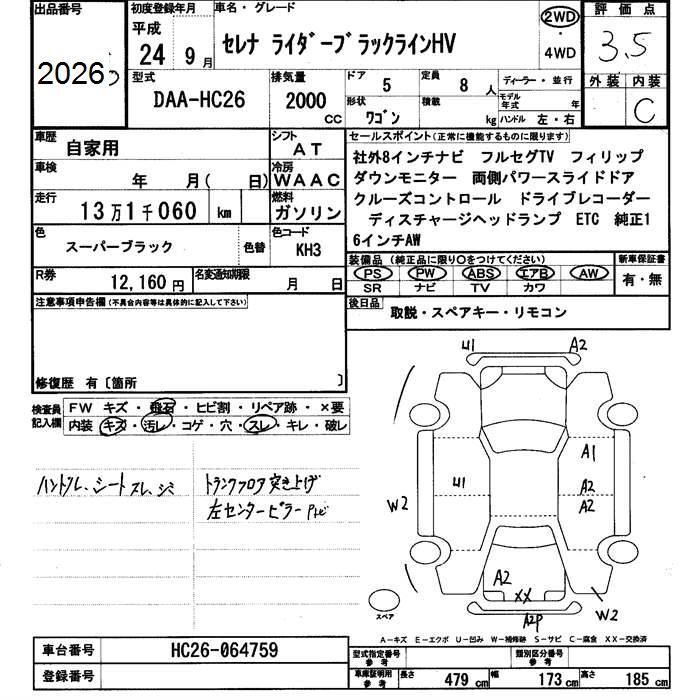 出品番号 初度登録年月 車名・グレード 2WD 評価点
平成
24 9月 セレナ ライダーブラックラインHV ・ 3.5
4WD
2026
型式 排気量 ドア 5 定員 8人 ディーラー・並行 外装 内装
モデル年式 年
DAA-HC26 2000cc 形状 ワゴン 積載 kg ハンドル 左・右 C
車歴 自家用 シフト AT セールスポイント(正常に機能するものに限ります)
車検 年 月( 日) 冷房 WAAC
走行 13万1千060 km 燃料 ガソリン
社外8インチナビ フルセグTV フィリップ
ダウンモニター 両側パワースライドドア
クルーズコントロール ドライブレコーダー
ディスチャージヘッドランプ ETC 純正1
6インチAW
色 スーパーブラック 色替 色コード KH3
装備品(純正品に限り○をつけてください) 新車保証書
PS PW ABS エアB AW 有・無
SR ナビ TV カワ
R券 12,160円 名変通知期限 月 日
後日品 取説・スペアキー・リモコン
注意事項申告欄(不具合内容等は具体的に記入して下さい)
修復歴 有〔箇所 〕
検査員記入欄 FW キズ・飛石・ヒビ割・リペア跡・×要
内装 キズ・汚レ・コゲ・穴・スレ・キレ・破レ
ハンドル、シート スレ、シミ
トランクフロア突き上げ
左センターピラー
U1 A2
A1
U1 A2
A2
W2
A2
XX
W2
A2P
スペア
A-キズ E-エクボ U-凹み W-補修跡 S-サビ C-腐食 XX-交換済
車台番号 HC26-064759
登録番号
型式指定番号 参考 類別区分番号 参考
車庫証明用 参考 長さ 479cm 幅 173cm 高さ 185cm